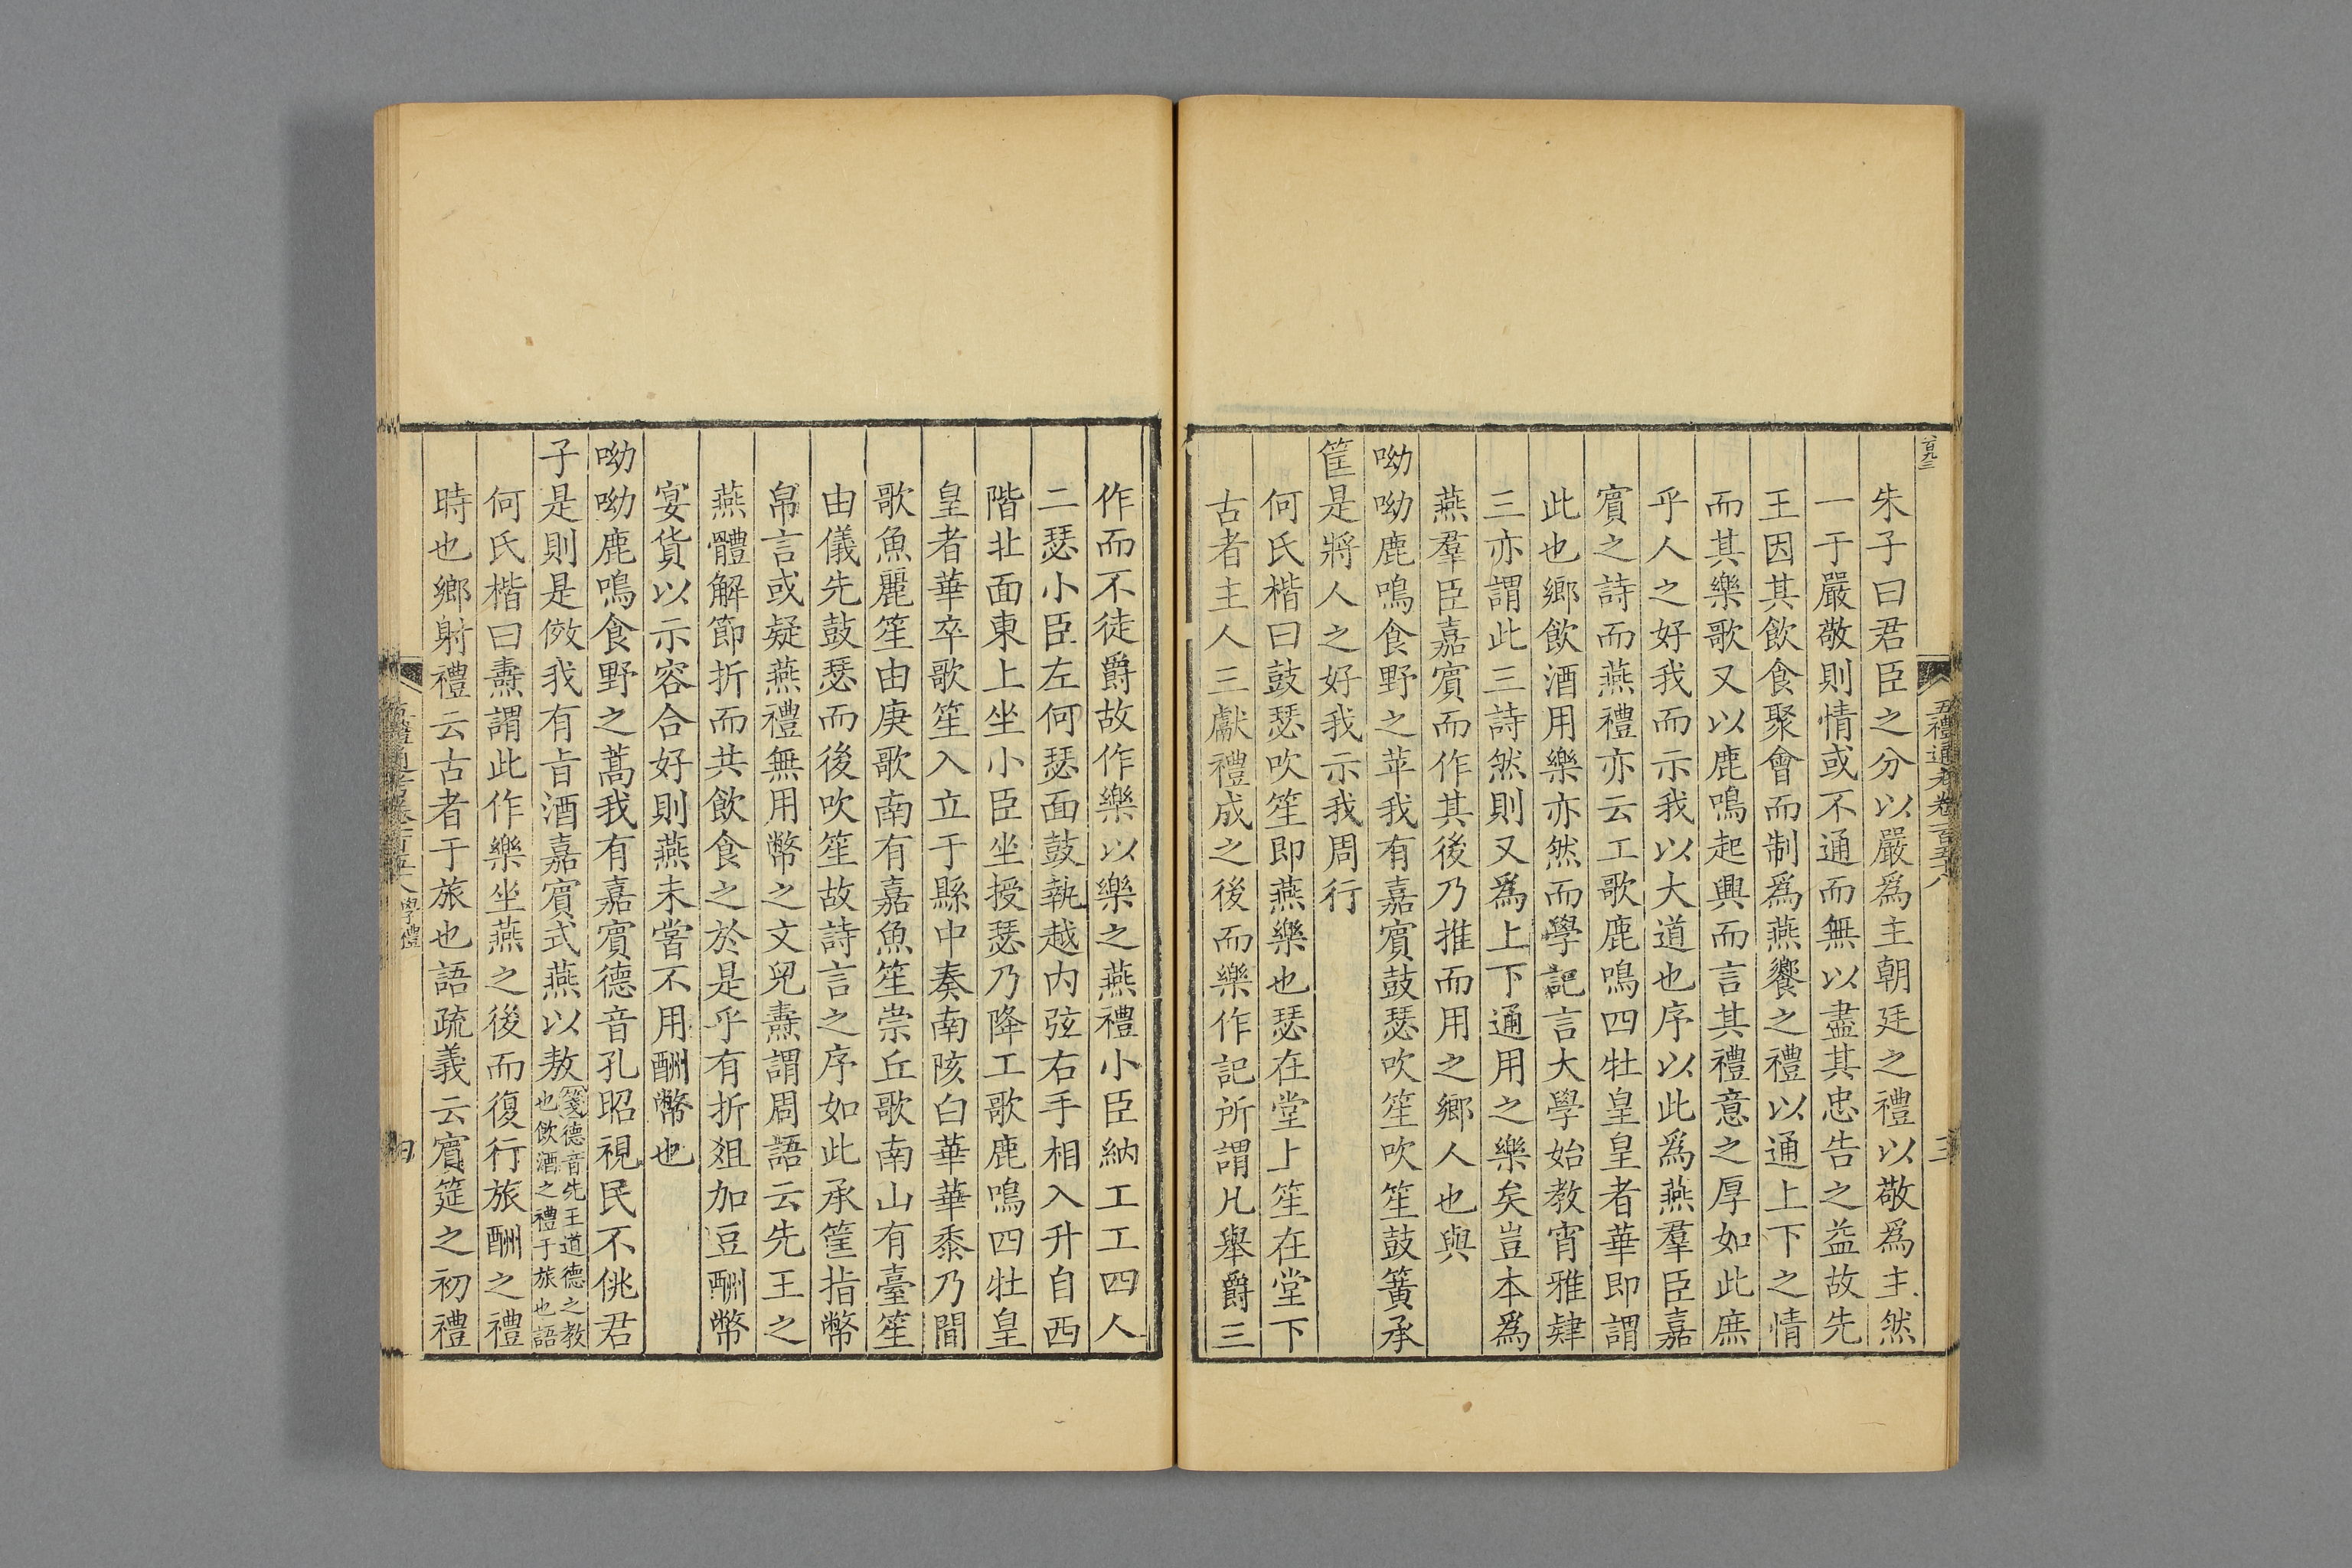 五禮通考卷一百五十八
三
朱子曰君臣之分以嚴爲主朝廷之禮以敬爲主然
一于嚴敬則情或不通而無以盡其忠告之益故先
王因其飲食聚會而制爲燕饗之禮以通上下之情
而其樂歌又以鹿鳴起興而言其禮意之厚如此庶
乎人之好我而示我以大道也序以此爲燕羣臣嘉
賓之詩而燕禮亦云工歌鹿鳴四牡皇皇者華即謂
此也鄉飲酒用樂亦然而學記言大學始教宵雅肄
三亦謂此三詩然則又爲上下通用之樂矣豈本爲
燕羣臣嘉賓而作其後乃推而用之鄉人也與
呦呦鹿鳴食野之苹我有嘉賓鼓瑟吹笙吹笙鼓簧承
筐是將人之好我示我周行
何氏楷曰鼓瑟吹笙即燕樂也瑟在堂上笙在堂下
古者主人三獻禮成之後而樂作記所謂凡舉爵三
作而不徒爵故作樂以樂之燕禮小臣納工工四人
二瑟小臣左何瑟面鼓執越内弦右手相入升自西
階北面東上坐小臣坐授瑟乃降工歌鹿鳴四牡皇
皇者華卒歌笙入立于縣中奏南陔白華華黍乃間
歌魚麗笙由庚歌南有嘉魚笙崇丘歌南山有臺笙
由儀先鼓瑟而後吹笙故詩言之序如此承筐指幣
帛言或疑燕禮無用幣之文兒燾謂周語云先王之
燕體解節折而共飲食之於是乎有折俎加豆酬幣
宴貨以示容合好則燕未嘗不用酬幣也
呦呦鹿鳴食野之蒿我有嘉賓德音孔昭視民不恌君
子是則是傚我有旨酒嘉賓式燕以敖箋德音先王道德之教
也飲酒之禮于旅也語
何氏楷曰燾謂此作樂坐燕之後而復行旅酬之禮
時也鄉射禮云古者于旅也語疏義云賓筵之初禮
學禮
四